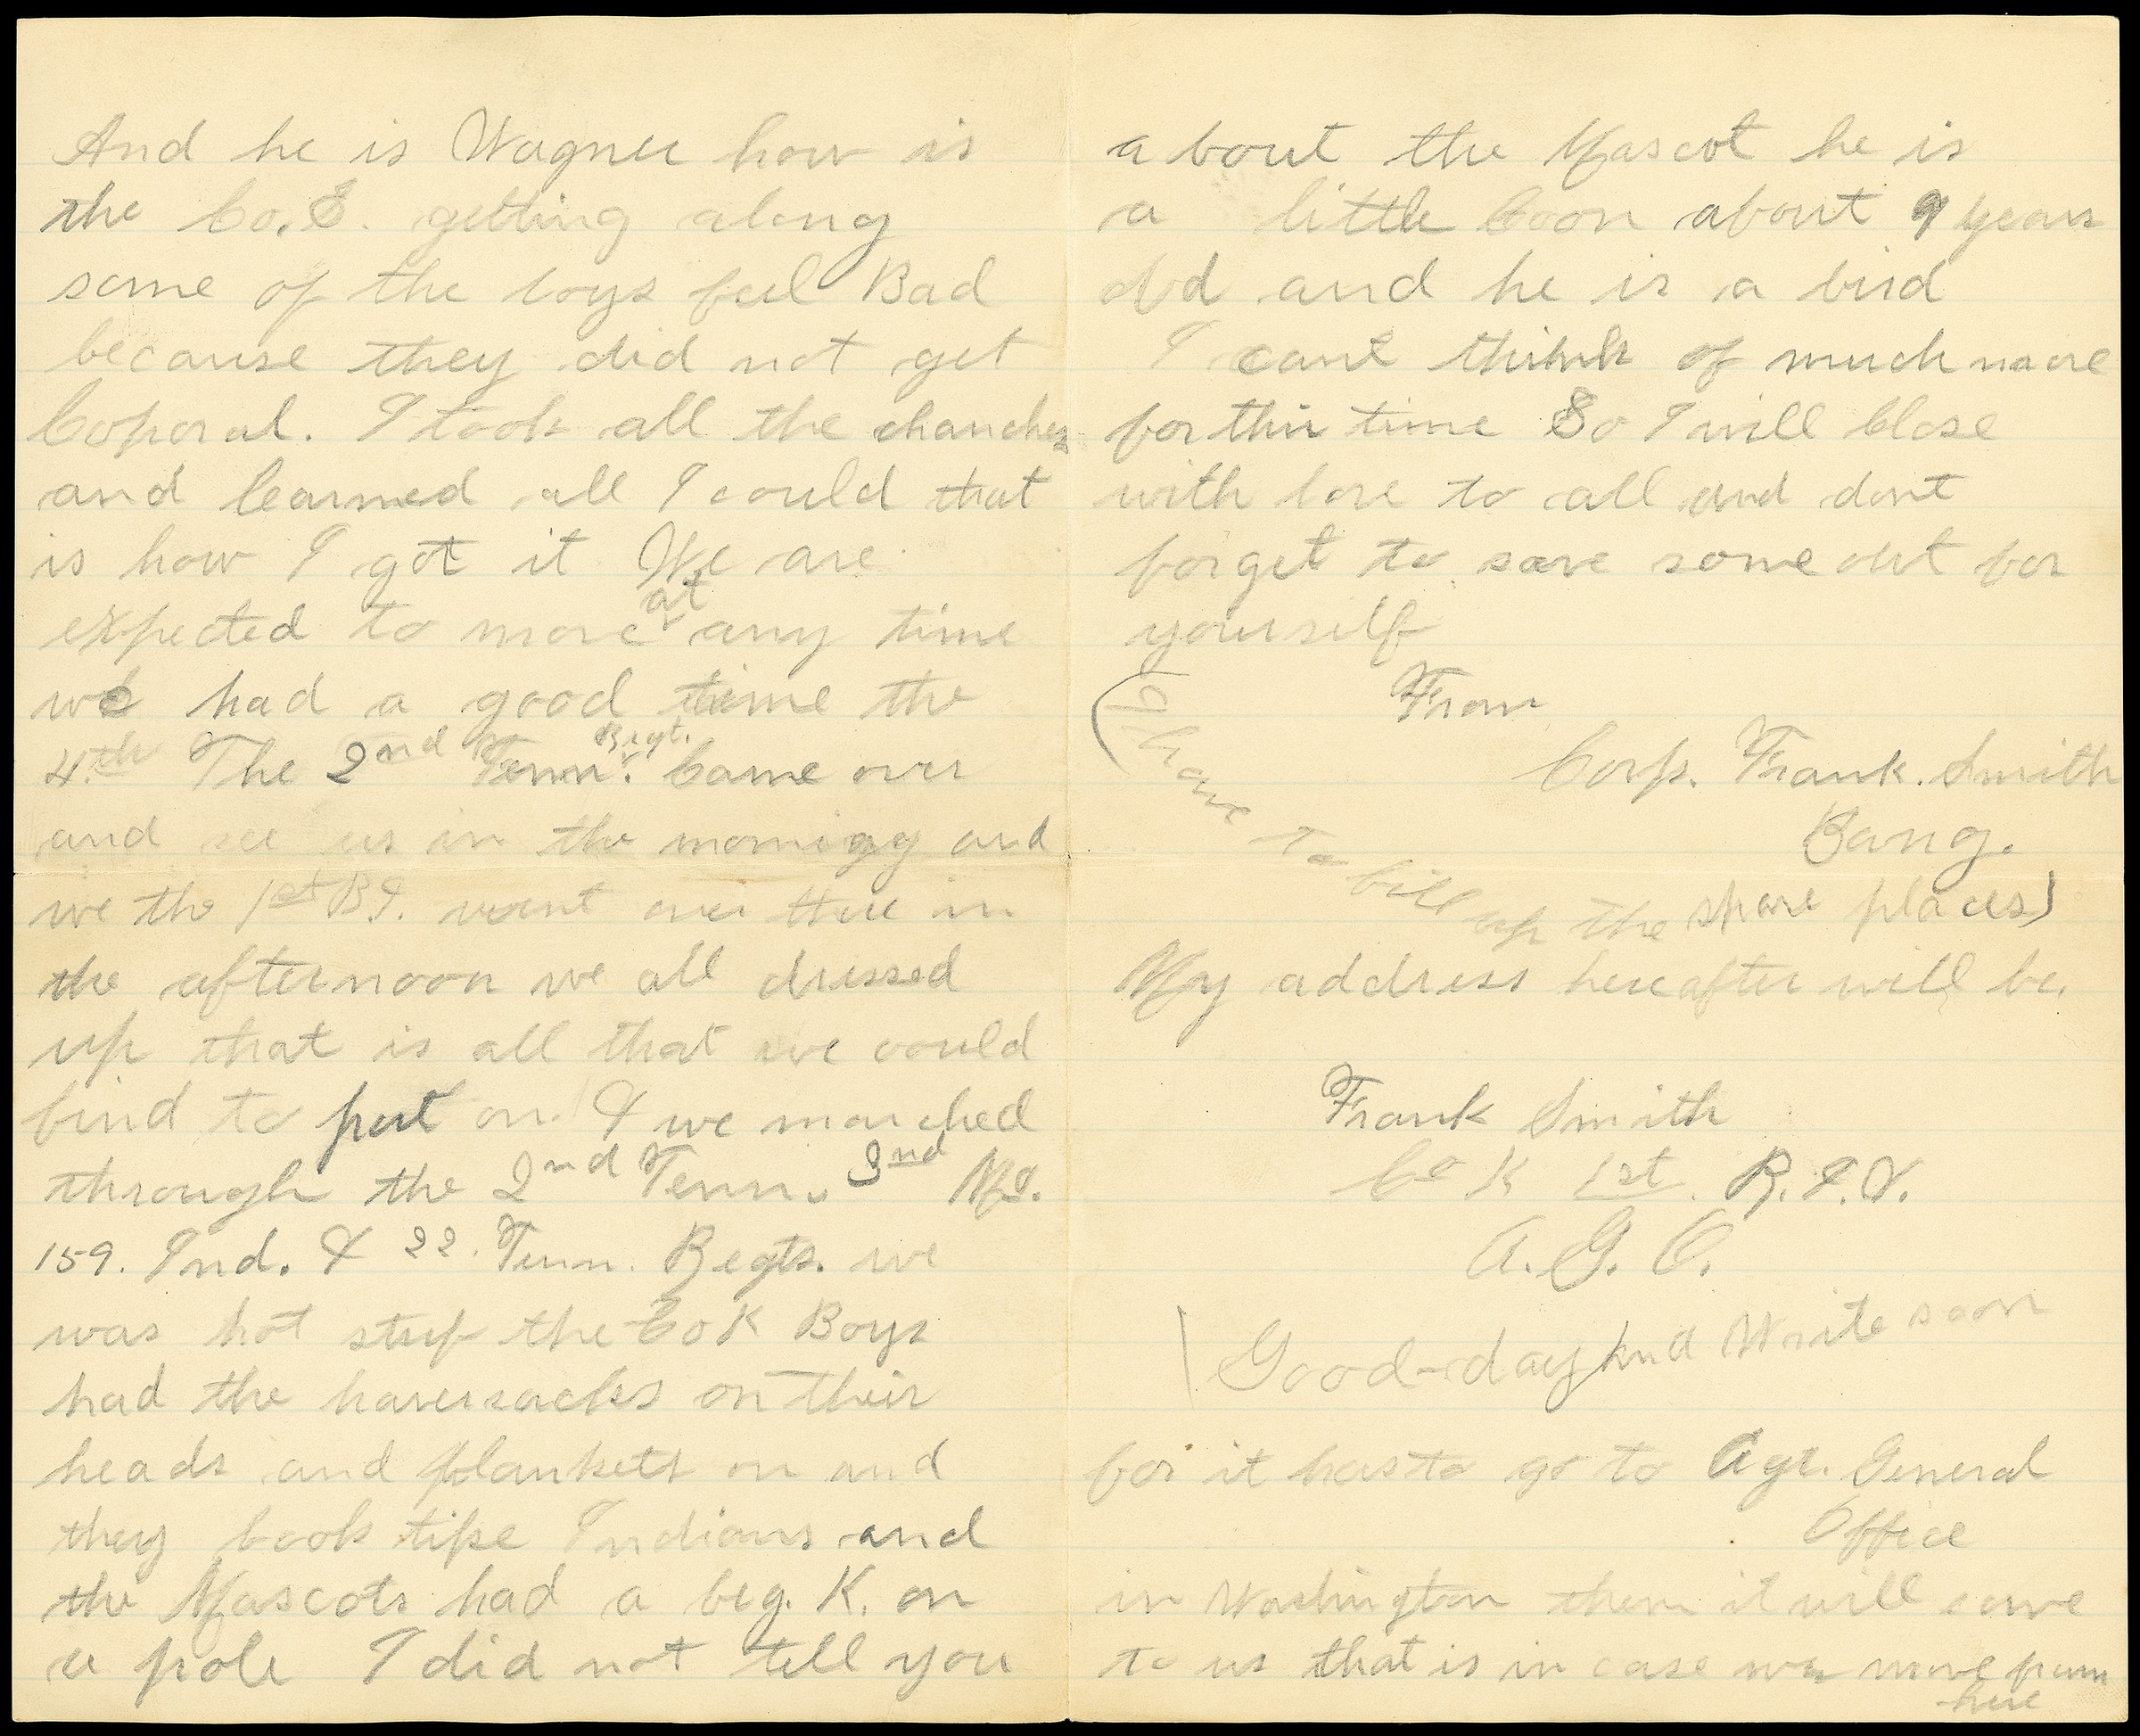 And he is Wagner how is
the Co. E. getting along
some of the boys feel Bad
because they did not get
Coporal. I took all the chanches
and learned all I could that
is how I got it We are
expected to move at any time
we had a good time the
4th The 2nd Tenn. Regt. Came over
and see us in the mornigg and
we the 1st R.I. went over there in
the afternoon we all dressed
up that is all that we could
find to put on. & we marched
through the 2nd Tenn. 3nd Mo.
159. Ind. & 22. Tenn. Regts. we
was hot stuf the Co K Boys
had the haversacks on their
heads and blankets on and
they look like Indians and
the Mascots had a big. K. on
a pole I did not tell you
a bout the Mascot he is
a little Coon about 9 years
old and he is a bird
I cant think of much more
for this time So I will Close
with love to all and dont
forget to save some out for
yourself
From
Corp. Frank. Smith
Bang.
(I have to fill up the spare places)
My address hereafter will be.
Frank Smith
Co K 1st. R.I.V.
A.G.O.
Good-day And Write soon
for it has to go to Agt. General
Office
in Washington then it will come
to us that is in case we move from
here